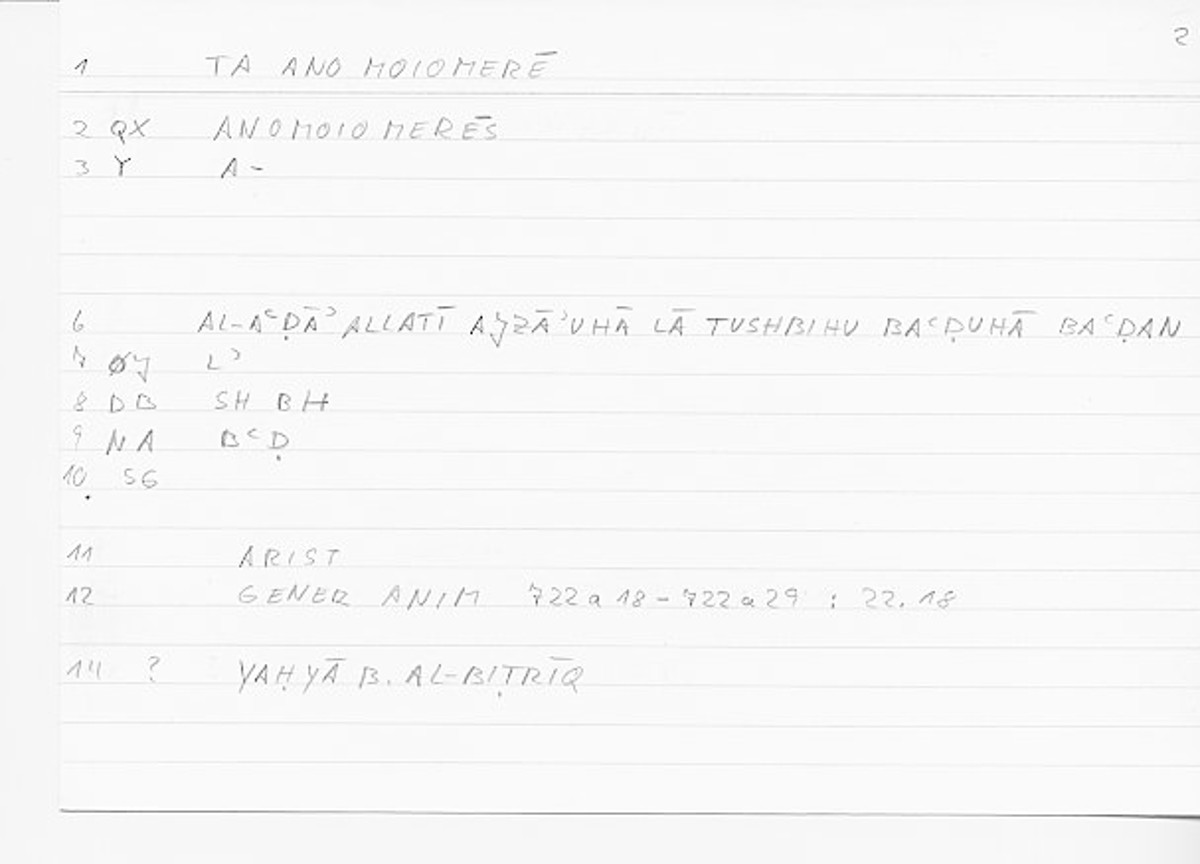 2
1 TA ANOMOIOMERĒ
2 QX ANOMOIOMERĒS
3 Y A-
6 AL-AᶜḌĀʾ ALLATĪ AJZĀʾUHĀ LĀ TUSHBIHU BAᶜḌUHĀ BAᶜḌAN
7 ØJ Lʾ
8 DB SH BH
9 NA BᶜḌ
10. SG
11 ARIST
12 GENER ANIM 722a18-722a29 : 22.18
14 ? YAḤYĀ B. AL-BIṬRĪQ